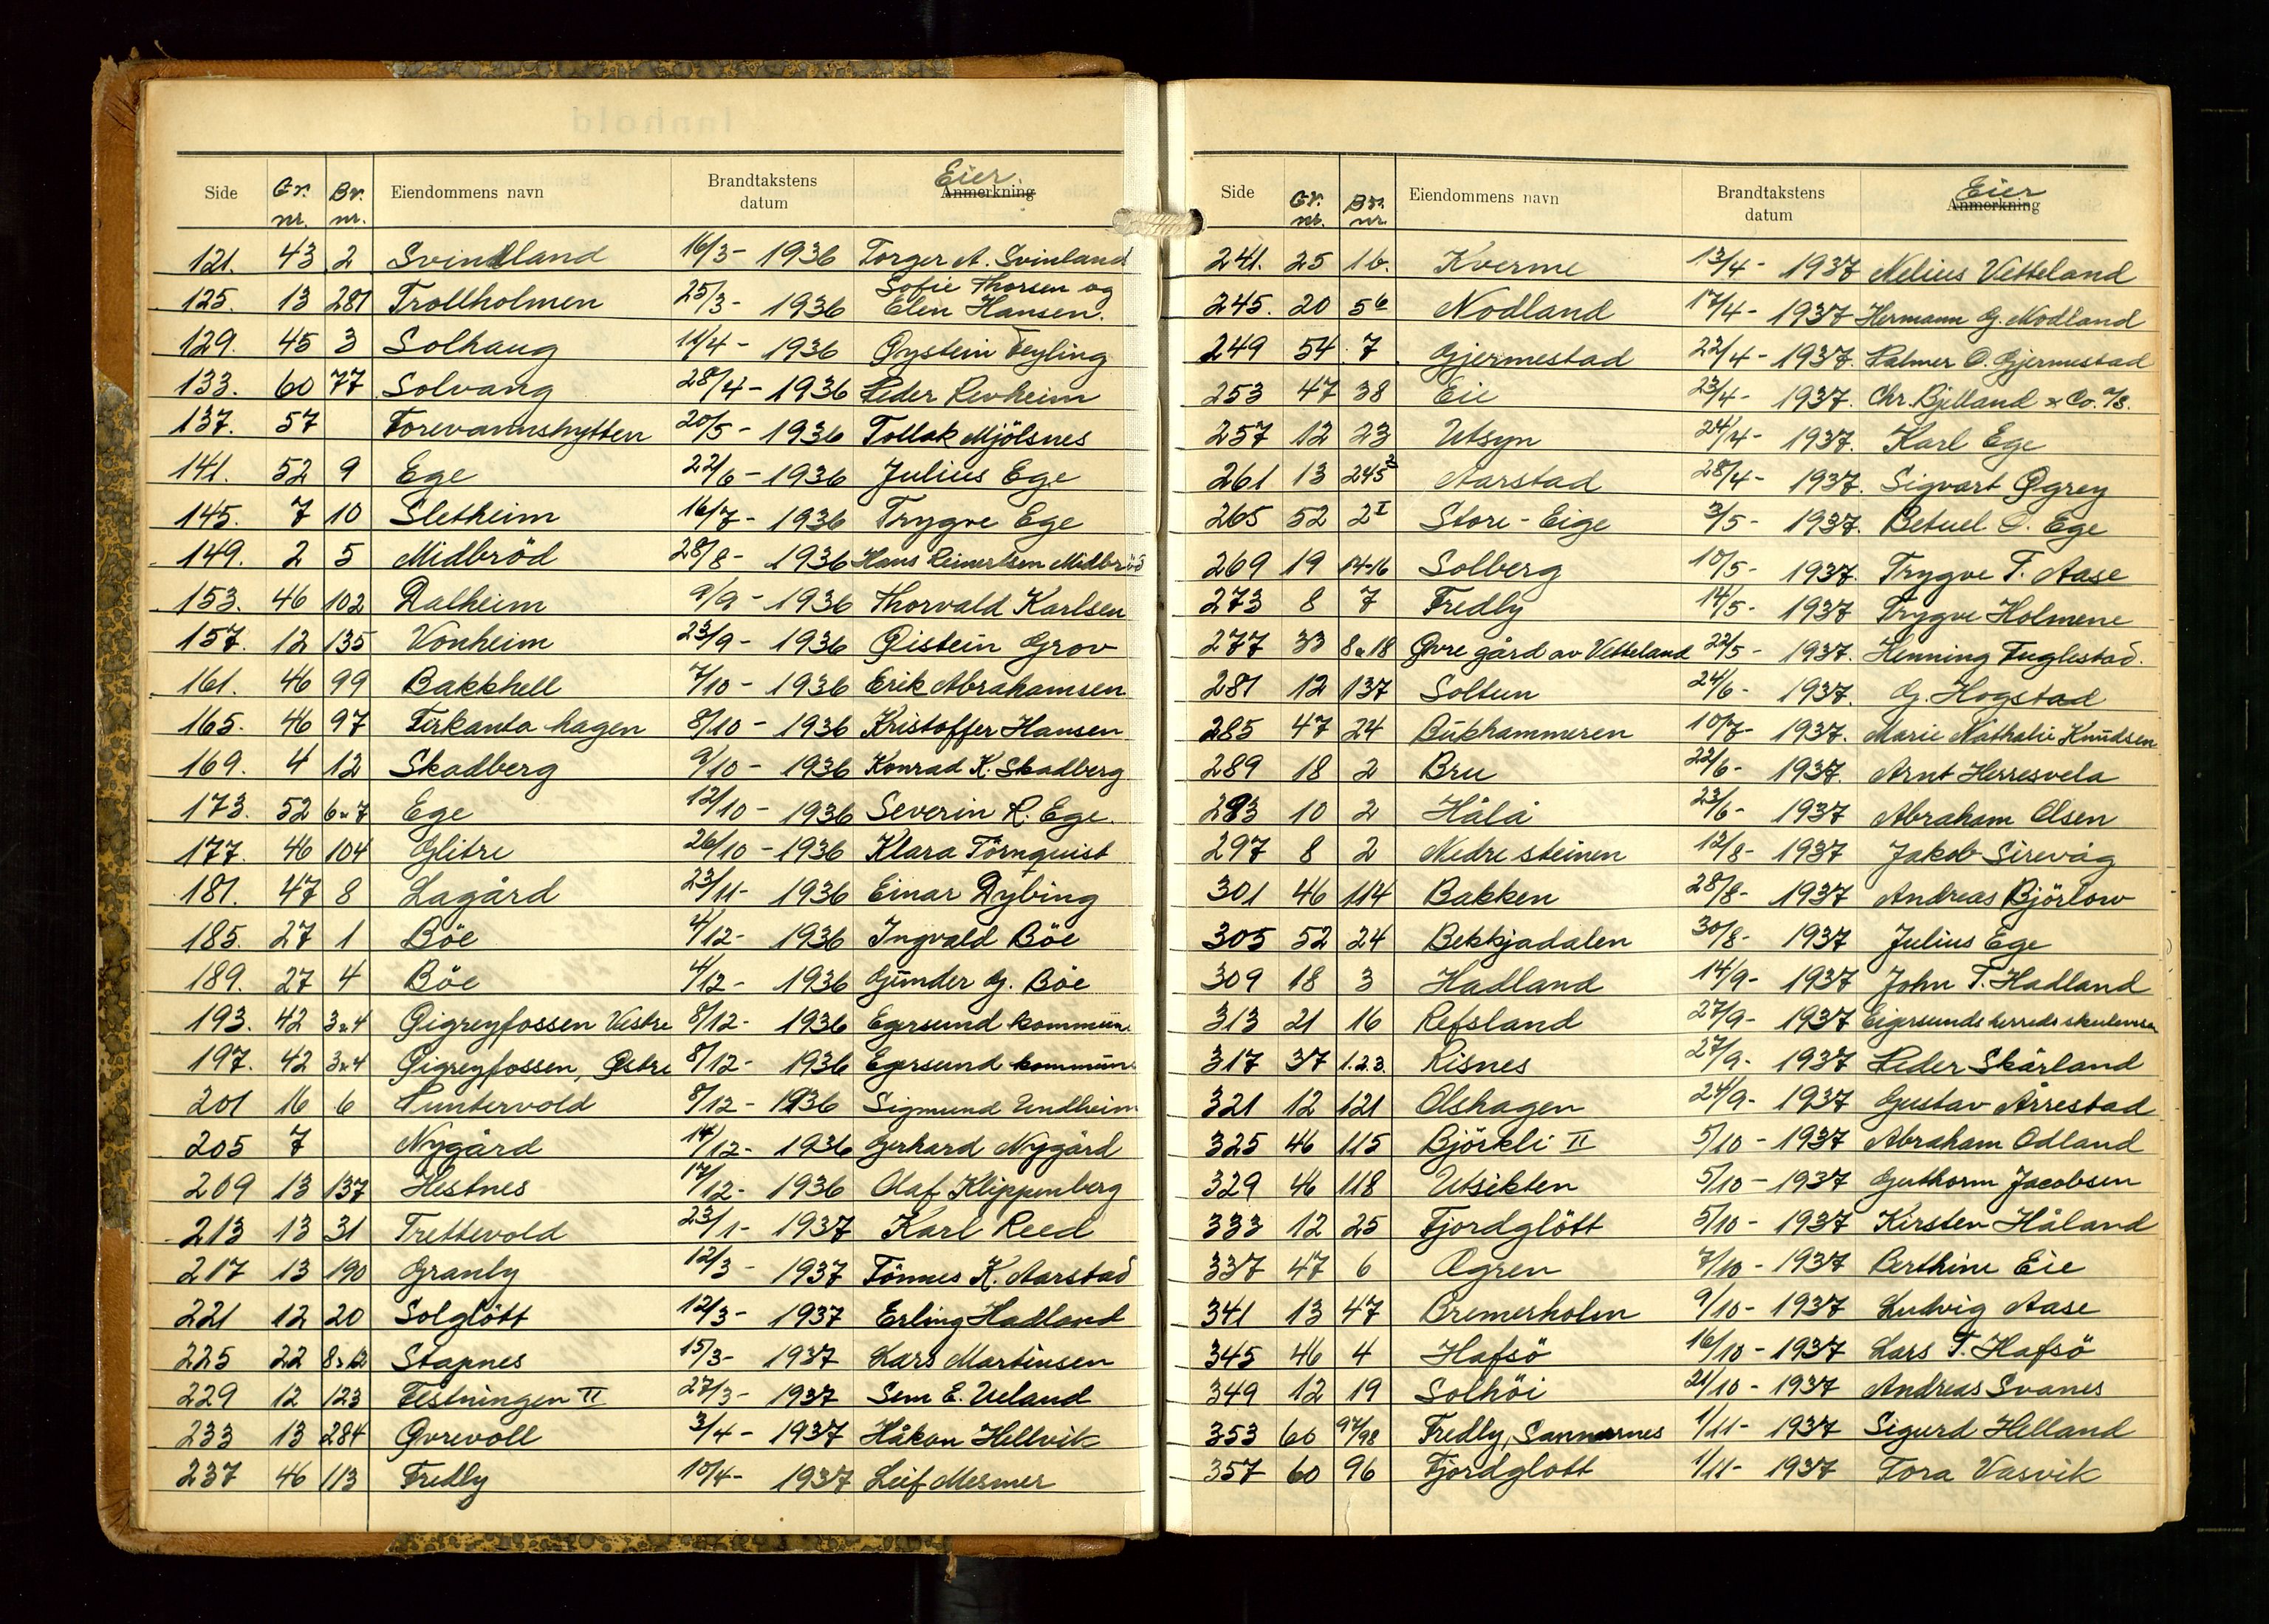 Side Gr. nr. Br. nr. Eiendommens navn Brandtakstens datum Eier Anmerkning
121. 43 2 Svindland 16/3 - 1936 Torger A. Svinland
125. 13 281 Trollholmen 25/3 - 1936 Sofie Thorsen og Elen Hansen.
129. 45 3 Solhaug 11/4 - 1936 Øystein Feyling
133. 60 77 Solvang 28/4 - 1936 Peder Revheim
137. 57 Forevannshytten 20/5 - 1936 Tollak Mjölsnes
141. 52 9 Ege 22/6 - 1936 Julius Ege
145. 7 10 Sletheim 16/7 - 1936 Trygve Ege
149. 2 5 Midbröd 28/8 - 1936 Hans Reinertsen Midbröd
153. 46 102 Dalheim 9/9 - 1936 Thorvald Karlsen
157. 12 135 Vonheim 23/9 - 1936 Øistein Grov
161. 46 99 Bakkhell 7/10 - 1936 Erik Abrahamsen
165. 46 97 Firkanta hagen 8/10 - 1936 Kristoffer Hansen
169. 4 12 Skadberg 9/10 - 1936 Konrad K. Skadberg
173. 52 6 & 7 Ege 12/10 - 1936 Severin R. Ege.
177. 46 104 Glitre 26/10 - 1936 Klara Törnquist
181. 47 8 Lagård 23/11 - 1936 Einar Dybing
185. 27 1 Böe 4/12 - 1936 Ingvald Böe
189. 27 4 Böe 4/12 - 1936 Gunder G. Böe
193. 42 3 & 4 Øigreyfossen Vestre 8/12 - 1936 Egersund kommun
197. 42 3 & 4 Øigreyfossen, Østre 8/12 - 1936 Egersund kommune
201 16 6 Puntervold 8/12 - 1936 Sigmund Undheim
205 7 Nygård 14/12 - 1936 Gerhard Nygård
209 13 137 Hestnes 17/12 - 1936 Olaf Klippenberg
213 13 31 Trettevold 23/1 - 1937 Karl Reed
217 13 190 Granly 12/3 - 1937 Tönnes K. Aarstad
221 12 20 Solglött 12/3 - 1937 Erling Hadland
225 22 8 & 12 Stapnes 15/3 - 1937 Lars Martinsen
229 12 123 Festningen II 27/3 - 1937 Sem E. Ueland
233 13 284 Øvrevoll 3/4 - 1937 Håkon Hellvik
237 46 113 Fredly 10/4 - 1937 Leif Mesmer
Side Gr. nr. Br. nr. Eiendommens navn Brandtakstens datum Eier Anmerkning
241. 25 16. Kverme 13/4 - 1937 Nelius Vetteland
245. 20 56 Nodland 17/4 - 1937 Hermann G. Nodland
249 54 7 Gjermestad 22/4 - 1937. Palmer O. Gjermestad
253 47 38 Eie 23/4 - 1937. Chr. Bjelland & Co. A/S.
257 12 23 Utsyn 24/4 - 1937. Karl Ege
261 13 245² Aarstad 28/4 - 1937. Sigvart Øgrey
265 52 2 I Store-Eige 3/5 - 1937. Betuel O. Ege
269 19 14-16 Solberg 10/5 - 1937. Trygve T. Aase
273 8 7 Fredly 14/5 - 1937 Trygve Holmene
277 33 8 & 18 Øvre gård av Vetteland 22/5 - 1937. Henning Fuglestad.
281 12 137 Soltun 24/6 - 1937. G. Hogstad
285 47 24 Bukhammeren 10/7 - 1937. Marie Nathalie Knudsen
289 18 2 Bru 22/6 - 1937. Arnt Herresvela
293 10 2 Hålå 23/6 - 1937 Abraham Olsen
297 8 2 Nedre steinen 12/8 - 1937 Jakob Sirevåg
301 46 114 Bakken 28/8 - 1937 Andreas Björlow
305 52 24 Bekkjadalen 30/8 - 1937 Julius Ege
309 18 3 Hadland 14/9 - 1937 John T. Hadland
313 21 16 Refsland 27/9 - 1937 Eigersunds herreds
317 37 1.2.3. Risnes 27/9 - 1937 Peder Skårland
321 12 121 Olshagen 24/9 - 1937 Gustav Årrestad
325 46 115 Björkli II 5/10 - 1937 Abraham Odland
329 46 118 Utsikten 5/10 - 1937 Guthorm Jacobsen
333 12 25 Fjordglött 5/10 - 1937 Kirsten Håland
337 47 6 Øgren 7/10 - 1937 Berthine Eie
341 13 47 Bremerholm 9/10 - 1937 Ludvig Aase
345 46 4 Hafsö 16/10 - 1937 Lars T. Hafsö
349 12 19 Solhöi 21/10 - 1937 Andreas Svanes
353 60 97/98 Fredly, Sannarnes 1/11 - 1937 Sigurd Helland
357 60 96 Fjordglott 1/11 - 1937 Tora Vasvik